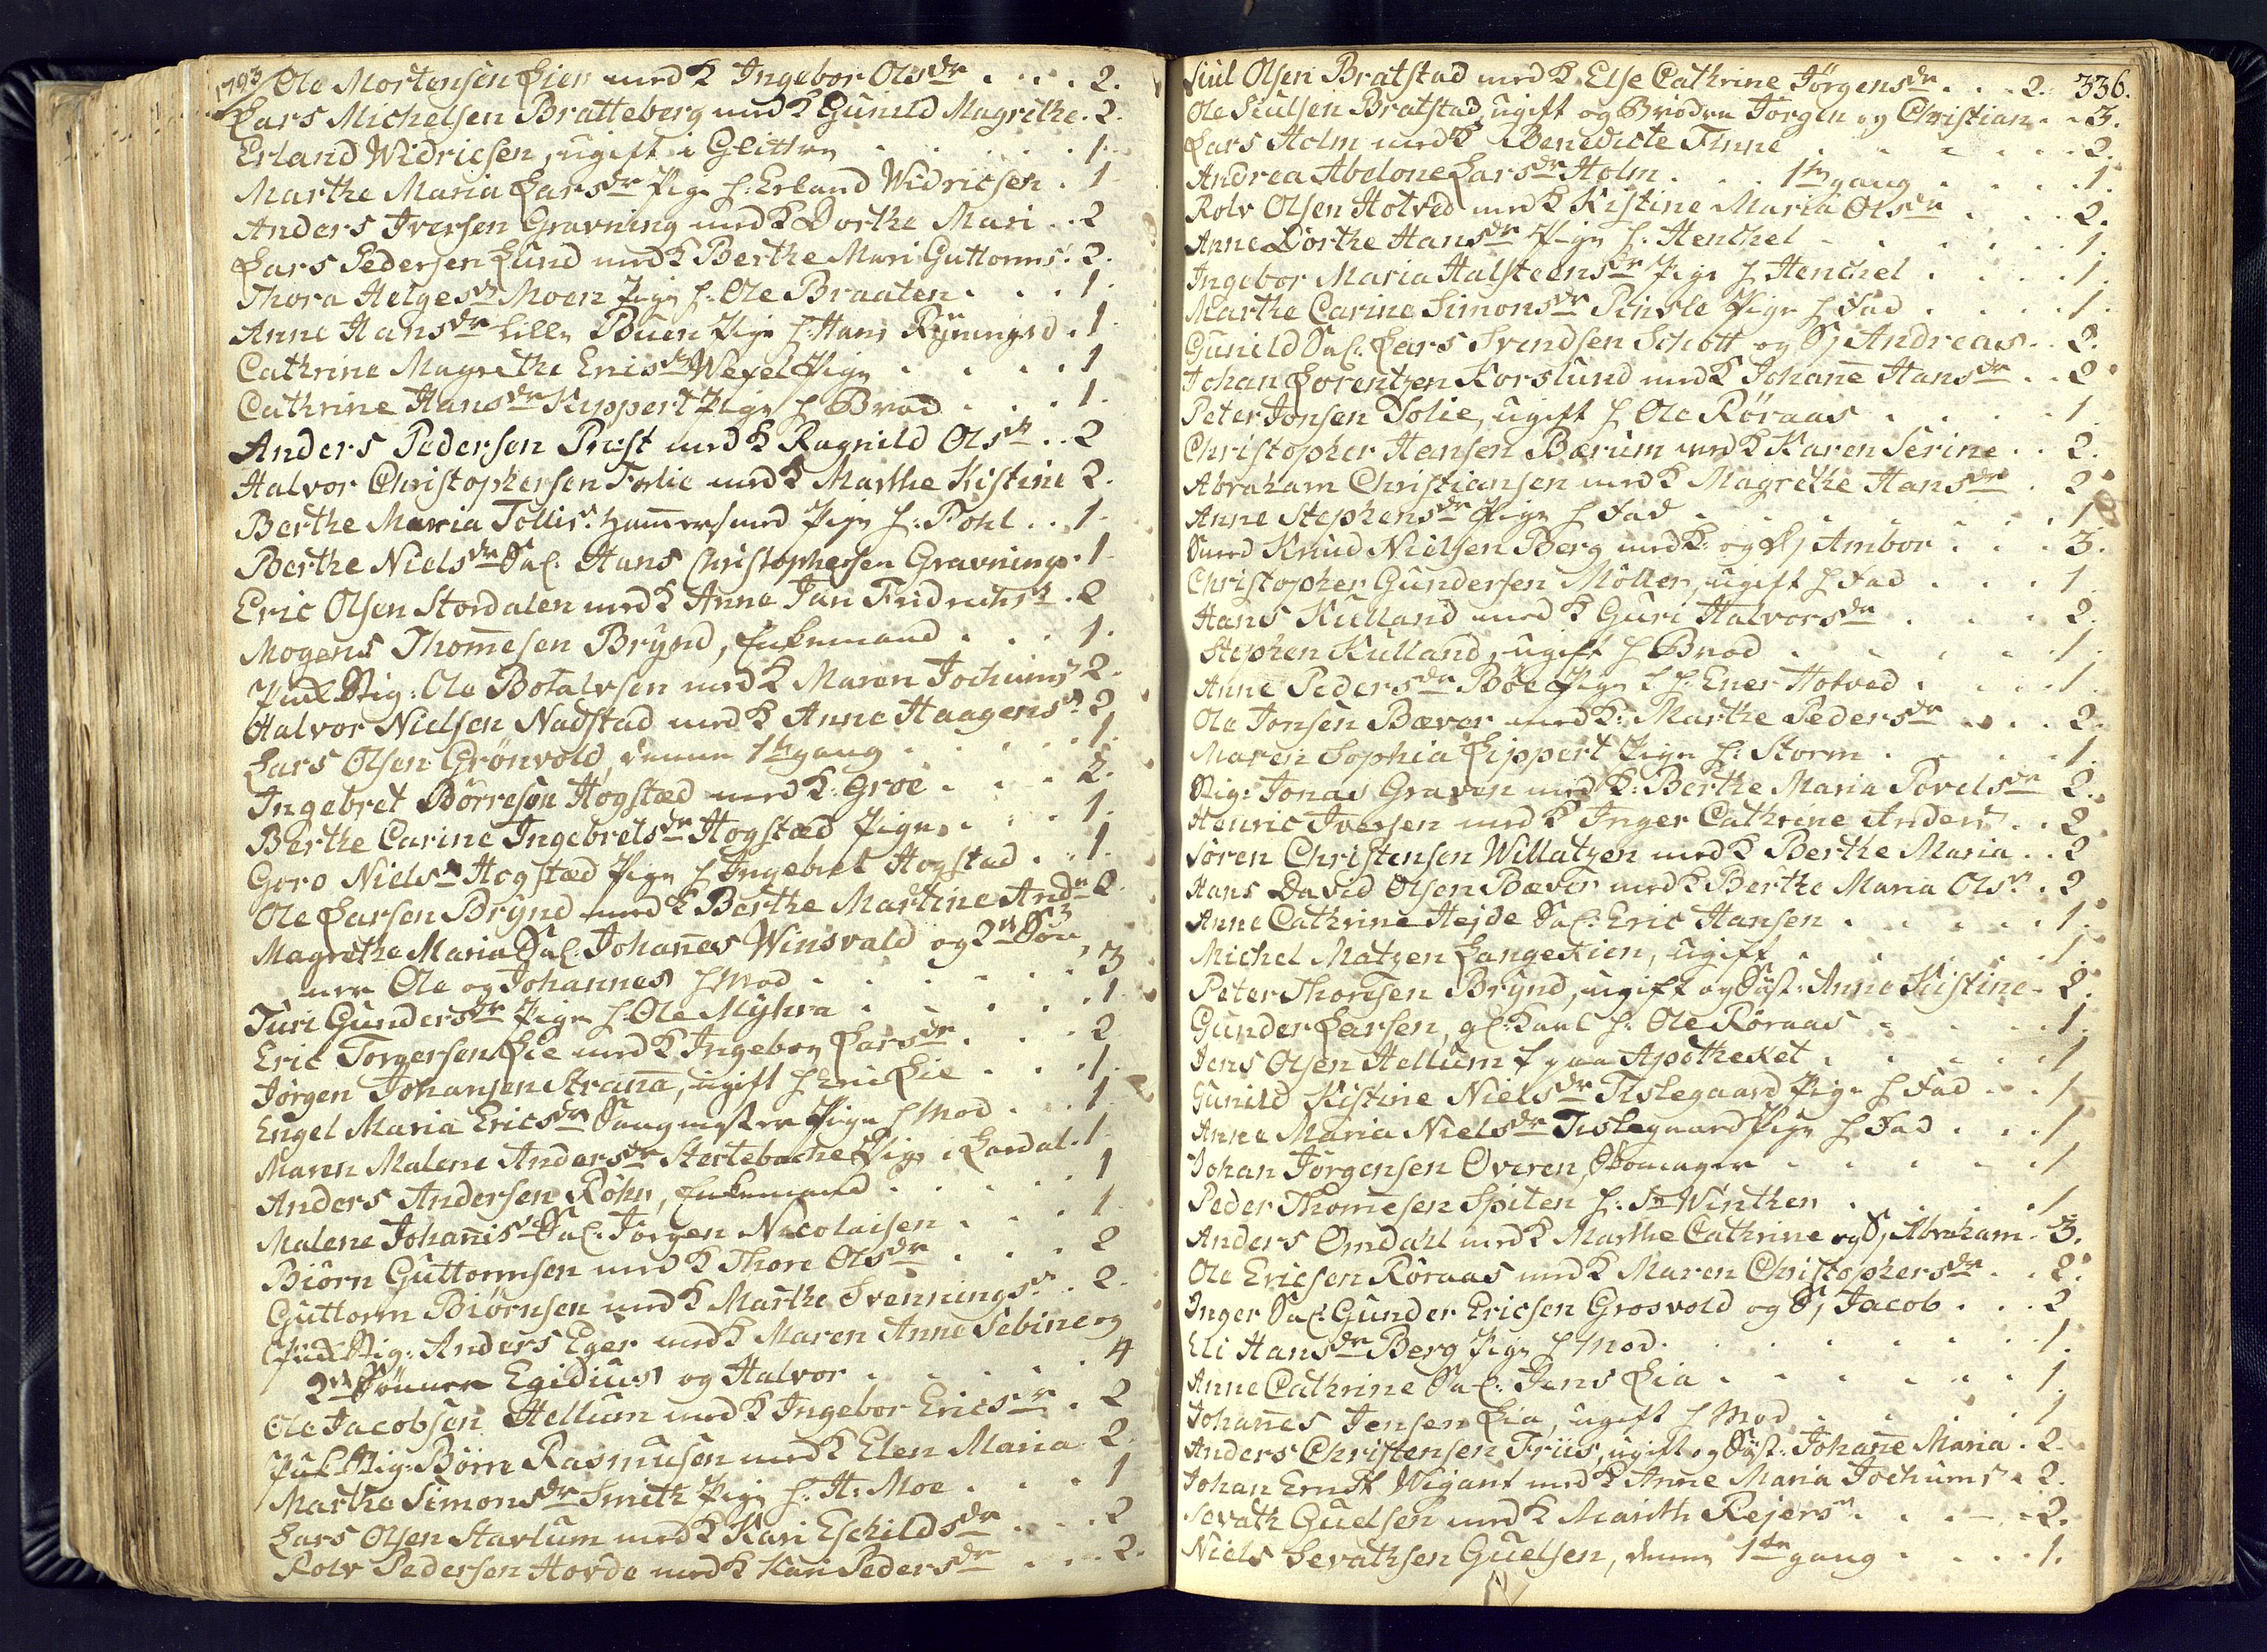 1793 Ole Mortensen Lien med K Ingebor Olsdr . . . 2.
Lars Michelsen Bratteberg med K Gunild Magrethe . 2.
Erland Widricsen, ugift i Glitten . . . 1.
Marthe Maria Larsdr Pige h: Erland Widricsen . 1
Anders Iversen Gravning med K Dorthe Mari . . 2
Lars Pedersen Lund med K Berthe Mari Guttorms: 2.
Thora Helgesdr Moen Pige h: Ole Braaten . . . 1.
Anne Hansdr Lille Buen Pige h: Hans Ryningsd . 1.
Cathrine Magrethe Ericsdr Wexel Pige . . . 1
Cathrine Hansdr Kippert Pige h Brod . . . 1.
Anders Pedersen Præst med K Ragnild Olsdr . . 2
Halvor Christophersen Forlie med K Marthe Kistine 2.
Berthe Maria Tollisdr Hammersmed Pige h: Pohl . . 1.
Berthe Nielsdr Sal: Hans Christophersen Gravning . 1
Eric Olsen Stordalen med K Anne Fridrichsdr . 2
Mogens Thomesen Brynd, Enkemand . . . 1.
Ole Botalvsen med K Maren Jochims 2.
Halvor Nielsen Nadstad med K Anne Haagensdr 2
Lars Olsen Grönvold, denne 1te gang . . . 1.
Ingebret Börresen Hogstæd med K: Groe . . . 2.
Berthe Carine Ingebretsdr Hogstæd Pige . . . 1.
Goro Nielsdr Hogstæd Pige h Ingebret Hogstad . . 1.
Ole Larsen Brynd med K Berthe Martine Andr 2
Magrethe Maria Sal: Johañes Winsvald og 2de Sön
ner Ole og Johannes h Mod . . . 3
Turi Gundersdr Pige h: Ole Myhra . . . 1
Eric Torgersen Lie med K Ingebor Larsdr . . . 2
Jörgen Johansen Strana, ugift h Eric Lie . . . 1.
Engel Maria Ericsdr Saugmester Pige h Mod . . . 1.
Maren Malene Andersdr Stertebache Pige i Lardal . 1.
Anders Andersen Röhn, Enkemand . . . 1
Malene Johañisdr Sal: Jörgen Nicolaisen . . . 1.
Biörn Guttormsen med K Thore Olsdr . . . 2
Guttorm Biörnsen med K Marthe Svenningsdr . 2.
Anders Eger med K Maren Anne Sebine og
2de Sönner Egidius og Halvor . . . 4
Ole Jacobsen Hellum med K Ingebor Ericsdr . 2
Börre Rasmusen med K Elen Maria 2.
Marthe Simonsdr Smith Pige h: H: Moe . . . 1
Lars Olsen Stavlum med K Kari Eschildsdr . . . 2
Rolv Pedersen Hovde med K Kari Pedersdr . . . 2.
Siul Olsen Bratstad med K Else Cathrine Jörgensdr . . 2. 336.
Ole Siulsen Bratstad, ugift og Brödre Jörgen og Christian . . 3.
Lars Holm med K Benedicte Finne . . . 2.
Andrea Abelone Larsdr Holm . . . 1te gang . . . 1.
Rolv Olsen Hotved med K Kistine Maria Olsdr . . . 2.
Anne Dorthe Hansdr Pige h: Henchel . . . 1.
Ingebor Maria Halsteensdr Pige h Henchel . . . 1.
Marthe Carine Simonsdr Pinsle Pige h Fad . . . 1.
Gunild Sal: Lars Svendsen Schott og S Andreas . . 2.
Johan Lorentzen Korslund med K Johañe Hansdr . . 2
Peter Jonsen Solie, ugift h Ole Röraas . . . 1
Christopher Hansen Bærum med K Karen Serine . . 2.
Abraham Christiansen med K Magrethe Hansdr . 2
Anne Stephensdr Pige h Fad . . . 1
Smed Knud Nielsen Berg med K: og D Ambor . . . 3.
Christopher Gundersen Möller, ugift h Fad . . . 1
Hans Kulland med K Guri Halvorsdr . . . 2.
Stephen Kulland, ugift h Brod . . . 1.
Anne Pedersdr Böe Pige h: Ener Hotved . . . 1
Ole Jonsen Bæver med K: Marthe Pedersdr . . . 2.
Maren Sophia Lippert Pige h: Storm . . . 1.
Jonas Graven med K: Berthe Maria Povelsdr 2.
Henric Iversen med K Inger Cathrine Andersdr . . 2
Sören Christensen Willatzen med K Berthe Maria . . 2
Hans David Olsen Bæver med K Berthe Maria Olsdr . 2
Anne Cathrine Hejde Sal: Eric Hansen . . . 1.
Michel Matzen Langekien, ugift . . . 1.
Peter Thoresen Brynd, ugift og Söst: Anne Kistine . 2.
Gunder Larsen, gl: Karl h: Ole Röraas . . . 1.
Jens Olsen Hellum h paa Apotheket . . . 1
Gunild Kistine Nielsdr Tislegaard Pige h Fad . . 1
Anne Maria Nielsdr Tislegaard Pige h Fad . . . 1
Johan Jörgensen Overen, Skomager . . . 1
Peder Thomesen Spiten h: Sr Winther . . . 1
Anders Omdahl med K Marthe Cathrine og S Abraham . 3.
Ole Ericsen Röraas med K Maren Christophersdr . . 2.
Inger Sal: Gunder Ericsen Grosvold og S Jacob . . . 2
Eli Hansdr Berg Pige h Mod . . . 1.
Anne Cathrine Sal: Jens Lia . . . 1.
Johañes Jensen Lia, ugift h Mod . . . 1
Anders Christensen Friis, ugift og Söst: Johañe Maria . 2.
Johan Ernst Wigant med K Anne Maria Jochums . 2.
Sevath Guelsen med K Marith Rejersdr . . . 2.
Niels Sevathsen Guelsen, denne 1te gang . . . 1.